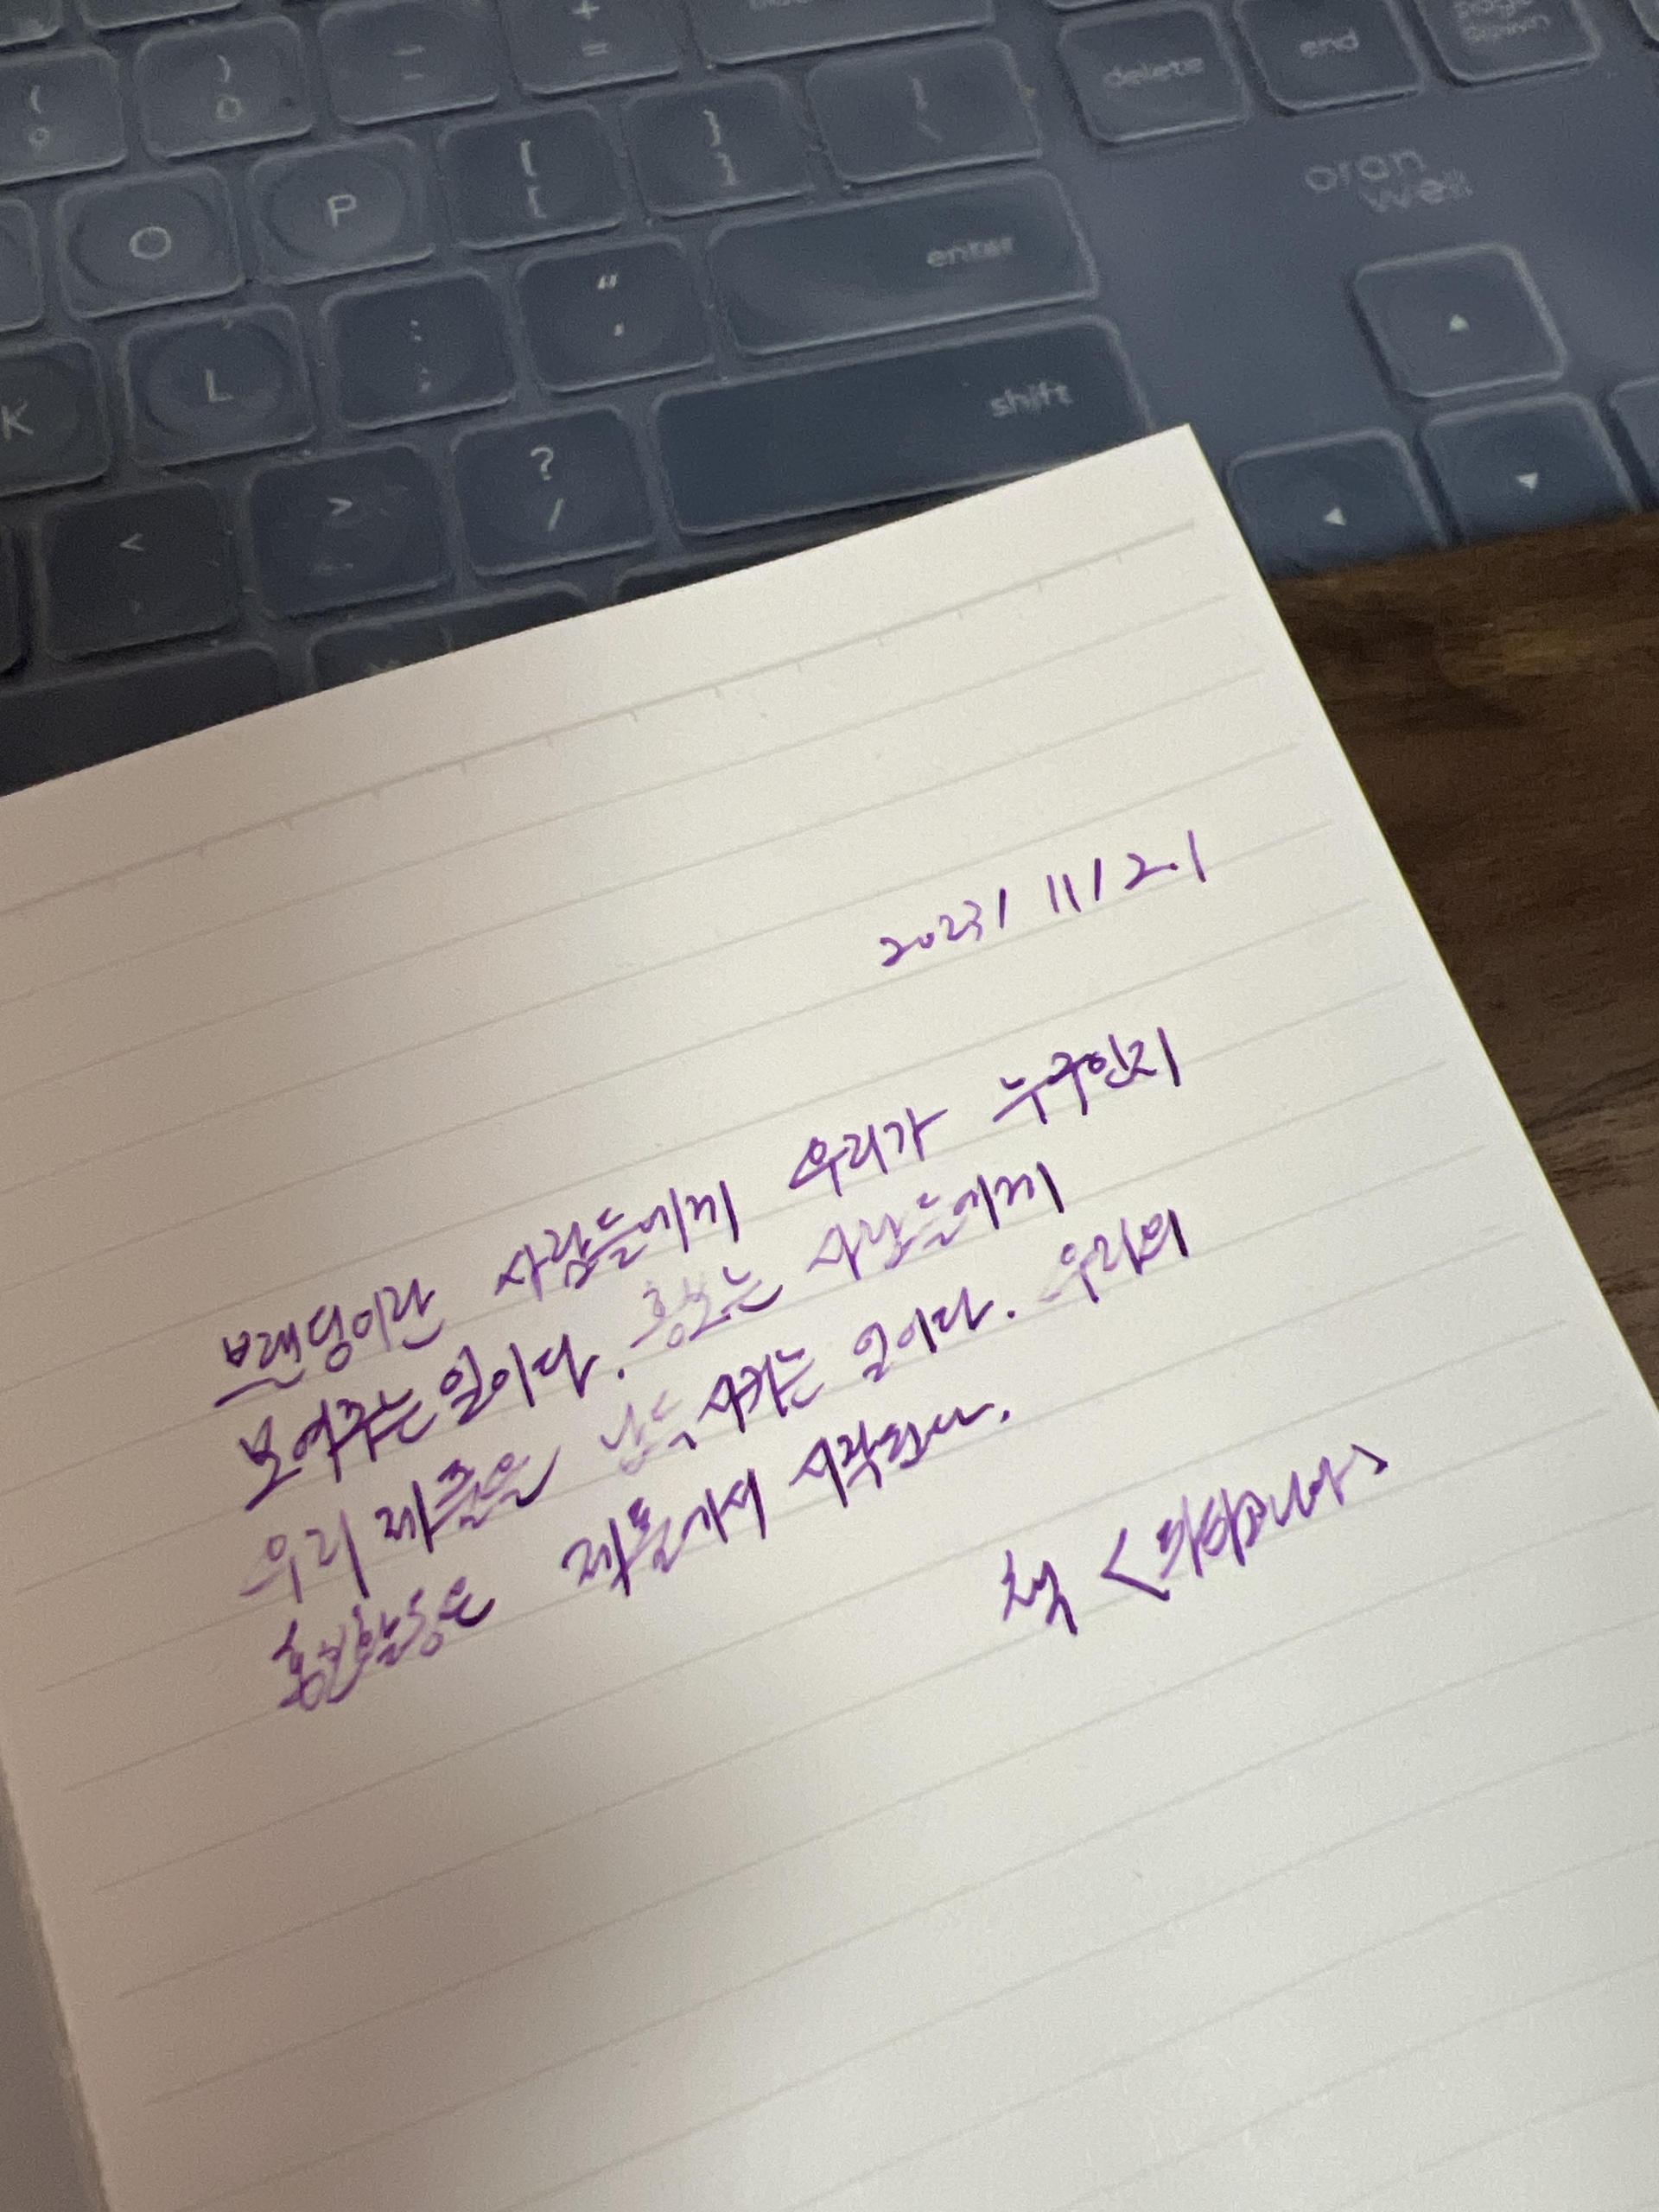 +
=
delete
end
(
)
0
-
{
[
}
]
oran
well
O
P
enter
L
:
;
"
'
K
shift
<
>
?
/
2023/ 11/ 21
브랜딩이란 사람들에게 우리가 누구인지
보여주는 일이다. 홍보는 사람들에게
우리 제품을 납득시키는 일이다. 우리의
홍보활동은 제품에서 시작된다.
책 <파타고니아>